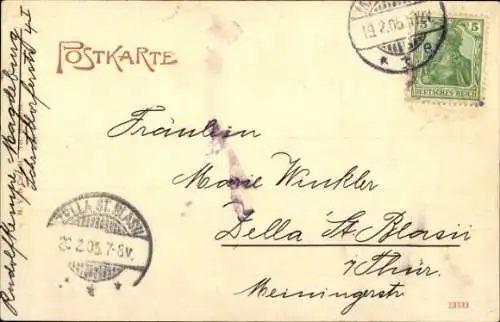 POSTKARTE
19.2.05.
e
5
DEUTSCHES REICH
Fräulein
Marie Winkler
Zella St. Blasii
i/Thür.
Meiningerstr
ZELLA ST. BLASII
20.2.05. 7-8V.
Rudolf Kempe Magdeburg